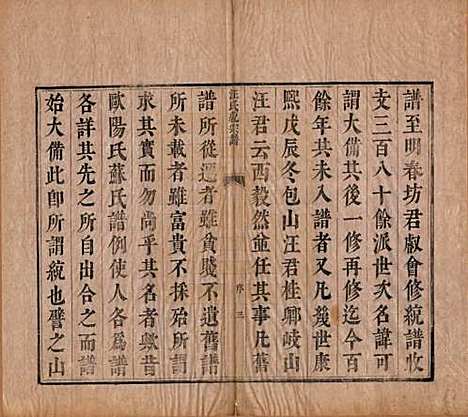 譜至明春坊君叡會修統譜收
支三百八十餘派世次名諱可
謂大備其後一修再修迄今百
餘年其未入譜者又凡幾世康
熙戊辰冬包山汪君桂卿岐山
汪君云西毅然並任其事凡舊
汪氏統宗譜
序
三
譜所從逕者雖貧賤不遺舊譜
所未載者雖富貴不採殆所謂
求其實而勿尚乎其名者與昔
歐陽氏蘇氏譜例使人各爲譜
各詳其先之所自出合之而譜
始大備此卽所謂統也譬之山